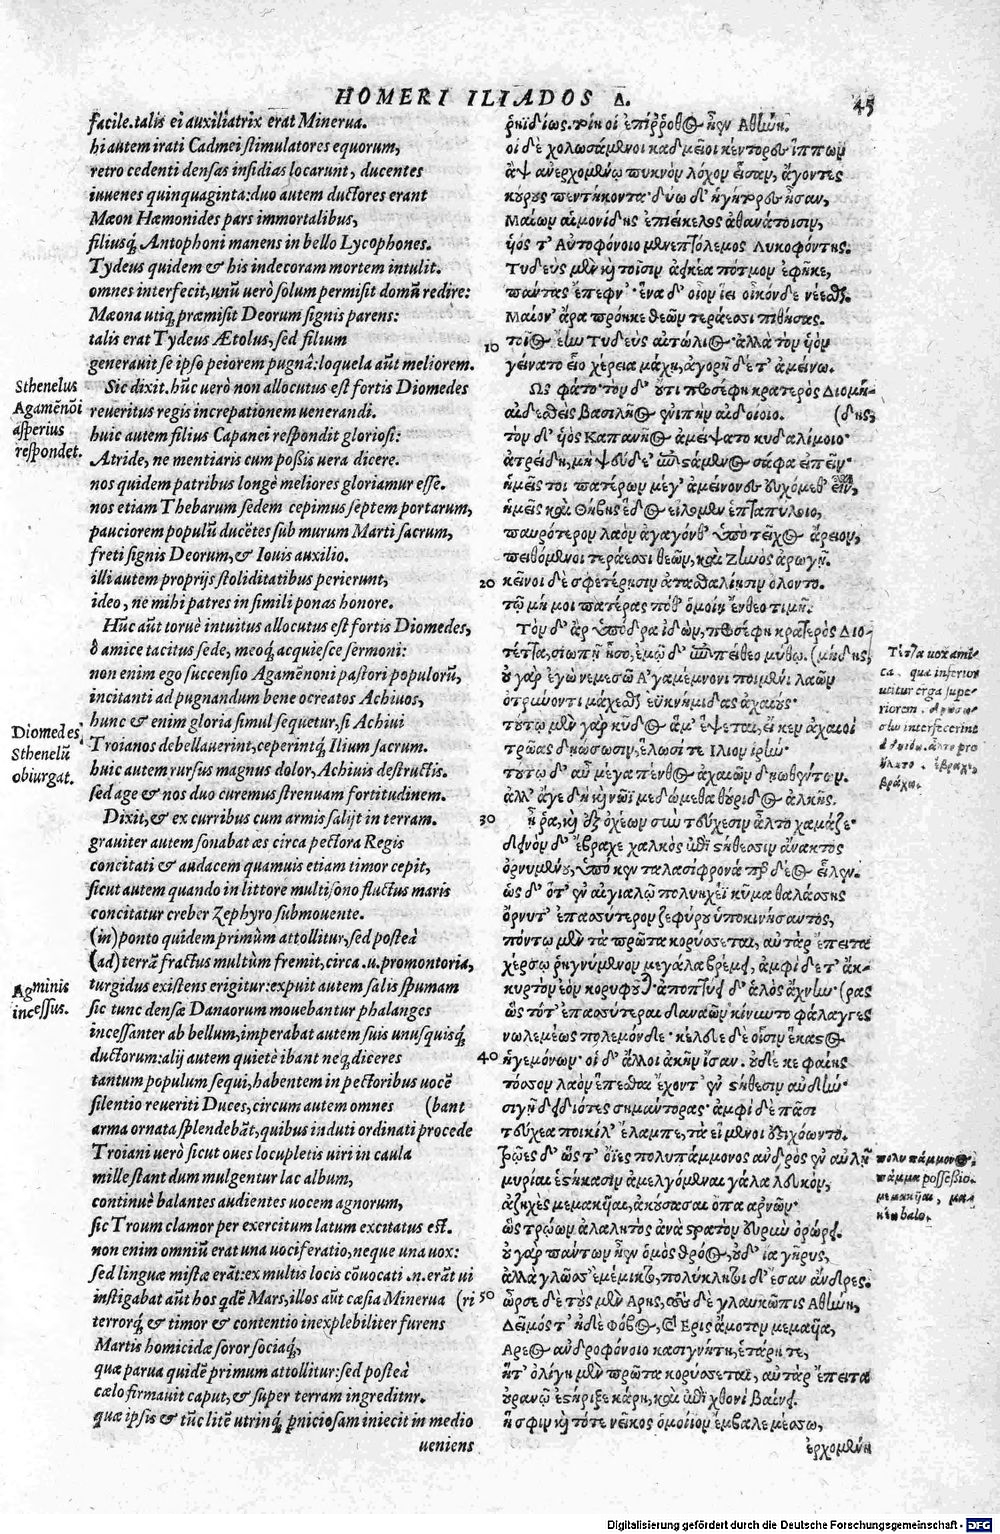 HOMERI ILIADOS Δ. 45
facile.talis ei auxiliatrix erat Minerua.
hi autem irati Cadmei stimulatores equorum,
retro cedenti densas insidias locarunt, ducentes
iuuenes quinquaginta:duo autem ductores erant
Mæon Hæmonides pars immortalibus,
filiusq́, Antophoni manens in bello Lycophones.
Tydeus quidem & his indecoram mortem intulit.
omnes interfecit,unū uerò solum permisit domū redire:
Mæona utiq, præmisit Deorum signis parens:
talis erat Tydeus Ætolus, sed filium
generauit se ipso peiorem pugnā:loquela aūt meliorem.
Sic dixit.hūc uerò non allocutus est fortis Diomedes
reueritus regis increpationem uenerandi.
huic autem filius Capanei respondit gloriosi:
Atride, ne mentiaris cum poßis uera dicere.
nos quidem patribus longè meliores gloriamur esse.
nos etiam Thebarum sedem cepimus septem portarum,
pauciorem populū ducētes sub murum Marti sacrum,
freti signis Deorum,& Iouis auxilio.
illi autem proprijs stoliditatibus perierunt,
ideo, ne mihi patres in simili ponas honore.
Hūc aūt toruè intuitus allocutus est fortis Diomedes,
ô amice tacitus sede, meoq́, acquiesce sermoni:
non enim ego succensio Agamēnoni pastori populorū,
incitanti ad pugnandum bene ocreatos Achiuos,
hunc & enim gloria simul sequetur,si Achiui
Troianos debellauerint,ceperintq́, Ilium sacrum.
huic autem rursus magnus dolor, Achiuis destructis.
sed age & nos duo curemus strenuam fortitudinem.
Dixit,& ex curribus cum armis salijt in terram.
grauiter autem sonabat æs circa pectora Regis
concitati & audacem quamuis etiam timor cepit,
sicut autem quando in littore multisono fluctus maris
concitatur creber Zephyro submouente.
(in)ponto quidem primùm attollitur,sed posteà
(ad)terrā fractus multùm fremit,circa .u.promontoria,
turgidus existens erigitur:expuit autem salis spumam
sic tunc densæ Danaorum mouebantur phalanges
incessanter ab bellum,imperabat autem suis unusquisq́,
ductorum:alij autem quietè ibant neq́, diceres
tantum populum sequi,habentem in pectoribus uocē
silentio reueriti Duces,circum autem omnes (bant
arma ornata splendebāt,quibus induti ordinati procede
Troiani uerò sicut oues locupletis uiri in caula
mille stant dum mulgentur lac album,
continuè balantes audientes uocem agnorum,
sic Troum clamor per exercitum latum excitatus est.
non enim omniū erat una uociferatio,neque una uox:
sed linguæ mistæ erāt:ex multis locis cōuocati .n.erāt ui
instigabat aūt hos qdē Mars,illos aūt cæsia Minerua (ri
terrorq́, & timor & contentio inexplebiliter furens
Martis homicidæ soror sociaq́,
quæ parua quidē primum attollitur:sed posteà
cælo firmauit caput,& super terram ingreditnr.
quæ ipsis & tūc litē utrinq́, pniciosam iniecit in medio
ueniens
Sthenelus
Agamēnōi
asperius
respondet.
Diomedes
Sthenelū
obiurgat.
Agminis
incessus.
ῥηϊδίως.τοίη οἱ ἐπίῤῥοθος ἦεν Ἀθήνη.
οἱ δὲ χολωσάμενοι καδμεῖοι κέντορες ἵππων
ἂψ ἀνερχομένῳ πυκνὸν λόχον εἷσαν, ἄγοντες
κούρους πεντήκοντα· δύω δ' ἡγήτορες ἦσαν,
Μαίων αἱμονίδης ἐπιείκελος ἀθανάτοισιν,
ὑιός τ' Αὐτοφόνοιο μενεπτόλεμος Λυκοφόντης.
Τυδεὺς μὲν καὶ τοῖσιν ἀεικέα πότμον ἐφῆκε,
πάντας ἔπεφν'· ἕνα δ' οἶον ἵει οἶκόνδε νέεσθαι.
Μαίον' ἄρα προέηκε θεῶν τεράεσσι πιθήσας.
10 τοῖος ἔην Τυδεὺς αἰτώλιος· ἀλλὰ τὸν ὑιὸν
γείνατο εἷο χέρεια μάχῃ,ἀγορῇ δέ τ' ἀμείνω.
Ὣς φάτο· τὸν δ' οὔτι προσέφη κρατερὸς Διομή-
αἰδεσθεὶς βασιλῆος ἐνιπὴν αἰδοίοιο. (δης,
τὸν δ' ὑιὸς Καπανῆος ἀμείψατο κυδαλίμοιο·
ἀτρείδη,μὴ ψεύδε' ἐπιστάμενος σάφα εἰπεῖν·
ἡμεῖς τοι πατέρων μέγ' ἀμείνονες εὐχόμεθ' εἶναι,
ἡμεῖς καὶ Θήβης ἕδος εἵλομεν ἑπταπύλοιο,
παυρότερον λαὸν ἀγαγόνθ' ὑπὸ τεῖχος ἄρειον,
πειθόμενοι τεράεσσι θεῶν,καὶ Ζηνὸς ἀρωγῇ.
20 κεῖνοι δὲ σφετέρῃσιν ἀτασθαλίῃσιν ὄλοντο.
τῷ μή μοι πατέρας ποθ' ὁμοίῃ ἔνθεο τιμῇ.
Τὸν δ' ἄρ ὑπόδρα ἰδὼν,προσέφη κρατερὸς Διο-
τέττα,σιωπῇ ἧσο,ἐμῷ δ' ἐπιπείθεο μύθῳ. (μήδης,
οὐ γὰρ ἐγὼ νεμεσῶ Ἀγαμέμνονι ποιμένι λαῶν
ὀτρύνοντι μάχεσθαι ἐϋκνήμιδας ἀχαιούς·
τούτῳ μὲν γὰρ κῦδος ἅμ' ἕψεται, εἴ κεν ἀχαιοὶ
τρῶας δῃώσωσιν,ἕλωσί τε Ἴλιον ἱρήν·
τούτῳ δ' αὖ μέγα πένθος ἀχαιῶν δῃωθέντων.
ἀλλ' ἄγε δὴ καὶ νῶϊ μεδώμεθα θούριδος ἀλκῆς.
30 ἦ ῥα,καὶ ἐξ ὀχέων σὺν τεύχεσιν ἆλτο χαμᾶζε·
δεινὸν δ' ἔβραχε χαλκὸς ἐπὶ στήθεσιν ἄνακτος
ὀρνυμένου,ὑπό κεν ταλασίφρονά περ δέος εἷλεν.
ὡς δ' ὅτ' ἐν αἰγιαλῷ πολυηχέϊ κῦμα θαλάσσης
ὄρνυτ' ἐπασσύτερον ζεφύρου ὑποκινήσαντος,
πόντῳ μὲν τὰ πρῶτα κορύσσεται, αὐτὰρ ἔπειτα
χέρσῳ ῥηγνύμενον μεγάλα βρέμει, ἀμφὶ δέ τ' ἄκ-
κυρτὸν ἐὸν κορυφοῦται·ἀποπτύει δ' ἁλὸς ἄχνην· (ρας
ὣς τότ' ἐπασσύτεραι δαναῶν κίνυντο φάλαγγες
νωλεμέως πολεμόνδε· κέλευε δὲ οἷσιν ἕκαστος
40 ἡγεμόνων· οἱ δ' ἄλλοι ἀκὴν ἴσαν. οὐδέ κε φαίης
τόσσον λαὸν ἕπεσθαι ἔχοντ' ἐν στήθεσιν αὐδήν·
σιγῇ δειδιότες σημάντορας· ἀμφὶ δὲ πᾶσι
τεύχεα ποικίλ' ἔλαμπε,τὰ εἱμένοι ἐστιχόωντο.
Τρῶες δ' ὥς τ' ὄϊες πολυπάμμονος ἀνδρὸς ἐν αὐλῇ
μυρίαι ἑστήκασιν ἀμελγόμεναι γάλα λευκὸν,
ἀζηχὲς μεμακυῖαι,ἀκούουσαι ὄπα ἀρνῶν·
ὣς τρώων ἀλαλητὸς ἀνὰ στρατὸν εὐρὺν ὀρώρει.
οὐ γὰρ πάντων ἦεν ὁμὸς θρόος,οὐδ' ἴα γῆρυς,
ἀλλὰ γλῶσσ' ἐμέμικτο,πολύκλητοι δ' ἔσαν ἄνδρες.
50 ὦρσε δὲ τοὺς μὲν Ἄρης,τοὺς δὲ γλαυκῶπις Ἀθήνη,
Δεῖμός τ' ἠδὲ Φόβος, καὶ Ἔρις ἄμοτον μεμαυῖα,
Ἄρεος ἀνδροφόνοιο κασιγνήτη,ἑτάρη τε,
ἥτ' ὀλίγη μὲν πρῶτα κορύσσεται, αὐτὰρ ἔπειτα
οὐρανῷ ἐστήριξε κάρη,καὶ ἐπὶ χθονὶ βαίνει.
ἥ σφιν καὶ τότε νεῖκος ὁμοίϊον ἔμβαλε μέσσῳ,
ἐρχομένη
Τέττα uox ami-
ca. qua inferior
utitur erga supe-
riorem.
πολυπάμμονος,
πάμμα possessio.
Digitalisierung gefördert durch die Deutsche Forschungsgemeinschaft - DFG